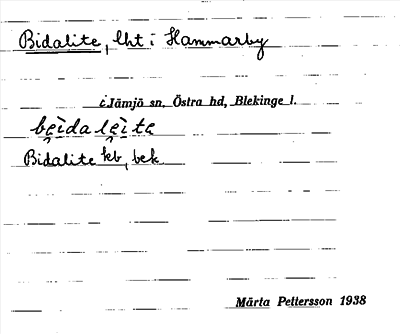 Bidalite, lht i Hammarby
i Jämjö sn, Östra hd, Blekinge l.
bèi̯da lèi̯te
Bidalite kb, bek.
Märta Pettersson 1938